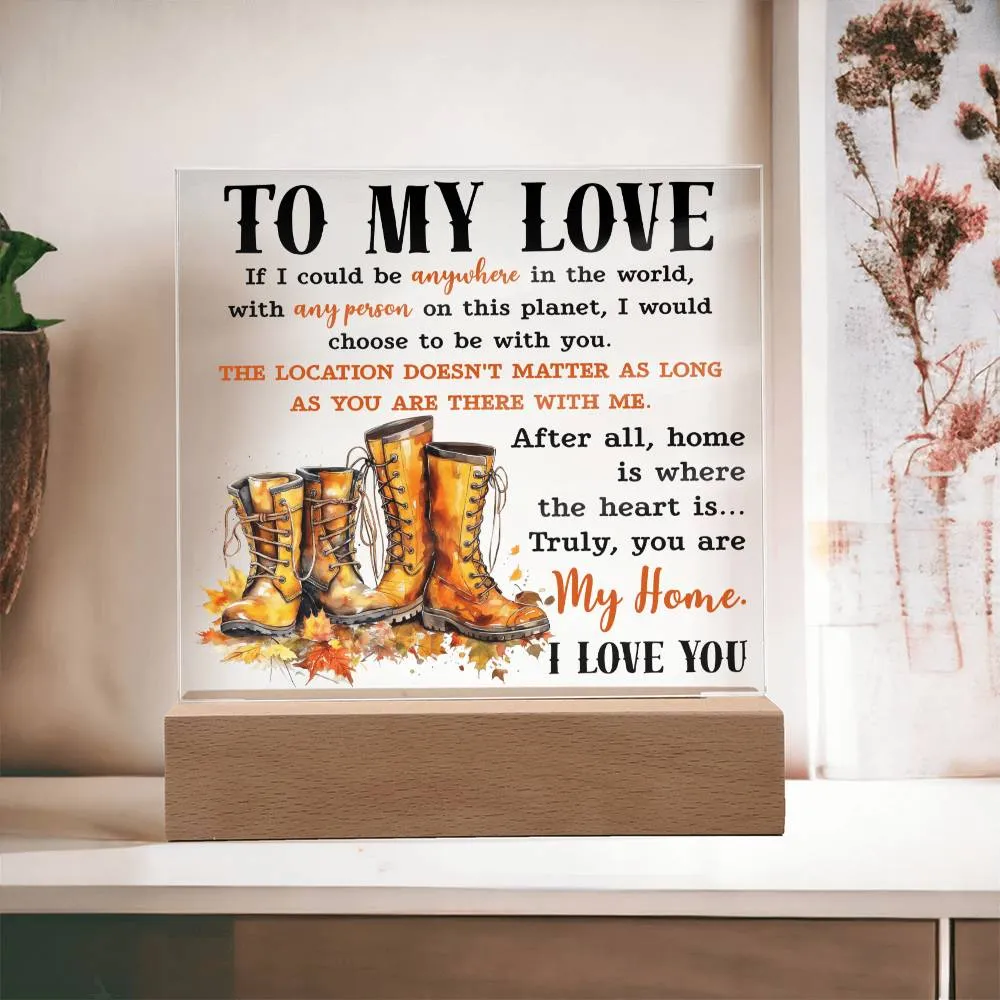 TO MY LOVE
If I could be anywhere in the world,
with any person on this planet, I would
choose to be with you.
THE LOCATION DOESN'T MATTER AS LONG
AS YOU ARE THERE WITH ME.
After all, home
is where
the heart is...
Truly, you are
My Home.
I LOVE YOU